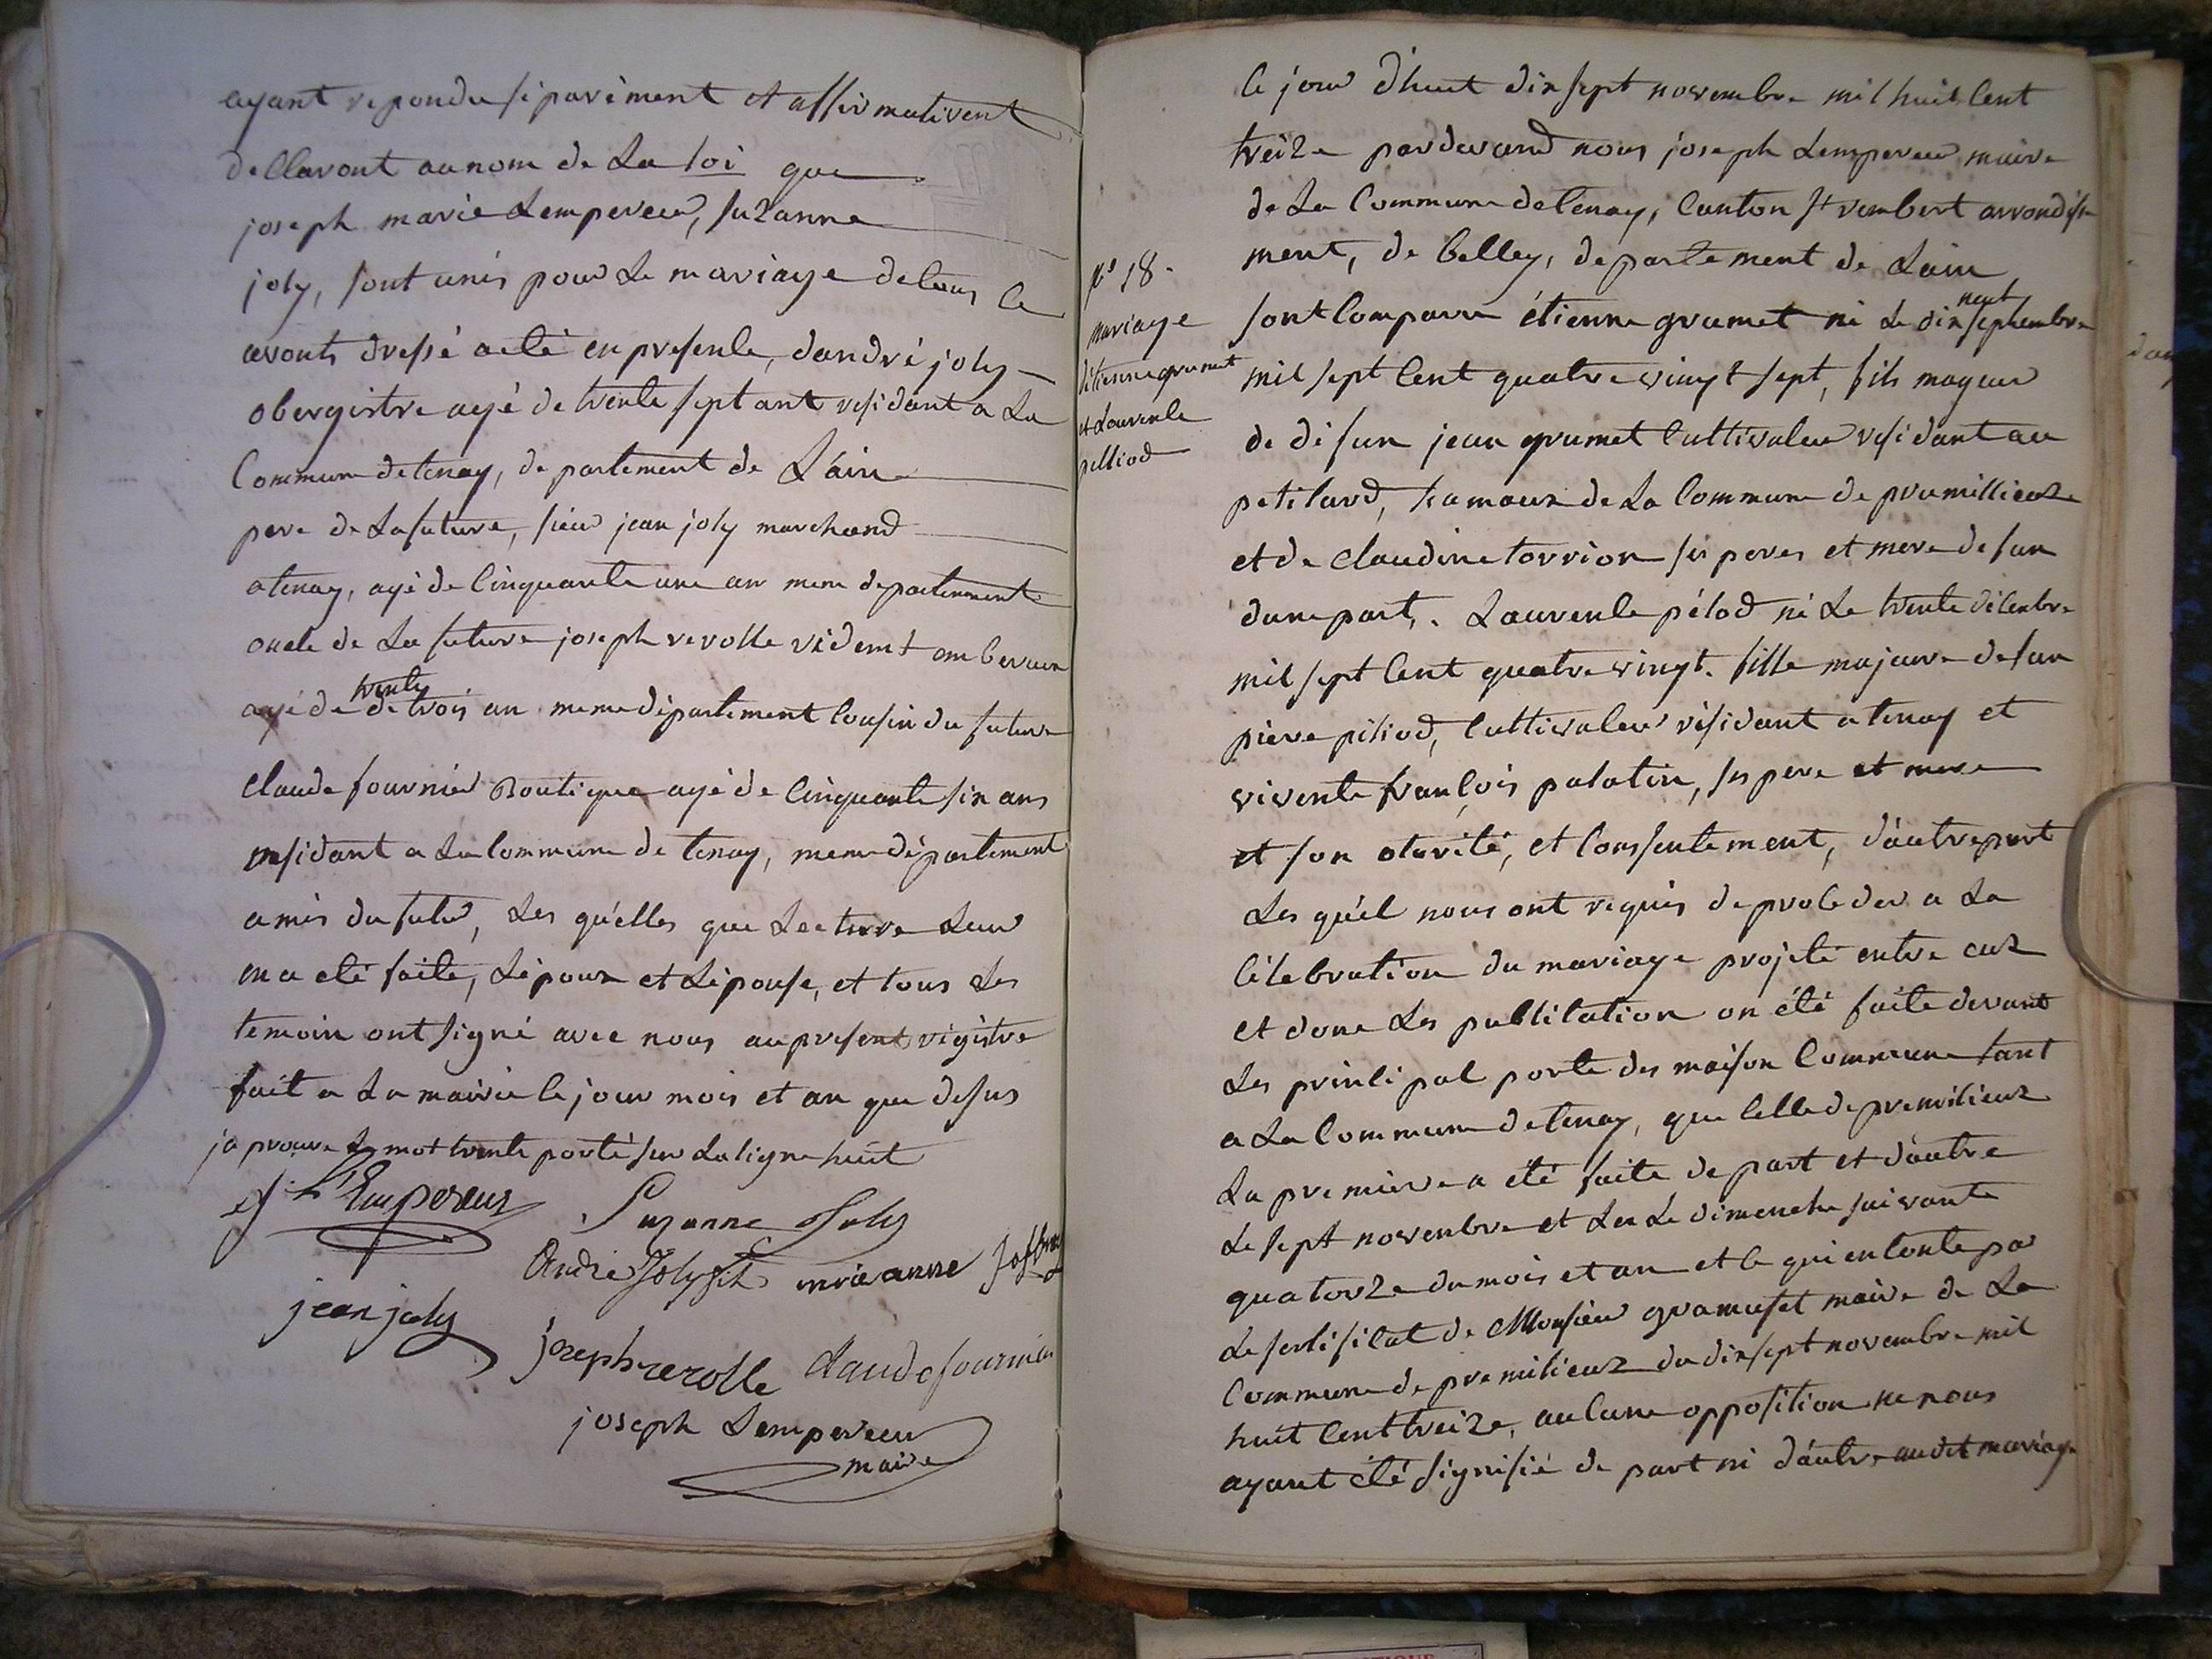 ayant repondu séparément et affirmativent
declaront au nom de La loi que
joseph marie Lempereur, suzanne
joly, sont unis pour Le mariage de tous ce
avonts dressé acte en presence, dandré joly
obergistre agé de trente sept ant residant a La
Commune de tenay, departement de L'ain
pere de La future, sieur jean joly marchand
a tenay, agé de Cinquante une an meme departement
oncle de La future joseph revolle
agé de trente de trois an meme département Cousin du future
Claude fournier Boutique agé de Cinquante six ans
residant a La Commune de tenay, meme département
amis du futur, Les qu'elles que Lecture Leur
en a eté faite, Lépoux et Lépouse, et tous Les
temoin ont signé avec nous au present régistre
fait a La mairie Ce jour mois et an que desus
japrouve Le mot trente porté sur La ligne huit
L'Empereur
Suzanne Joly
André Joly fils marianne
jean joly
joseph revolle Claude fournier
joseph Lempereur
maire
Ce jour d'huit dix sept novembre mil huit Cent
treize pardevand nous joseph Lempereur maire
de La Commune de tenay, Canton St rambert arrondisse
ment, de belley, departement de Lain
N° 18.
mariage
détienne grumet
et Laurence
pelliod
sont Comparu étienne grumet né Le dix neuf sephembre
mil sept Cent quatre vingt sept, fils mageur
de défun jean grumet Cultivateur residant au
petilard, hamaux de La Commune de prumillieuze
et de Claudine torrion ses peres et mere defun
dune part,. Laurence pélod né Le trente décembre
mil sept Cent quatre vingt. fille majeure defun
piere péliod, Cultivateur résidant a tenay et
vivente françois palatin, ses pere et mere
et son otorité, et Conssentement, dáutre part
Les quél nous ont requis de proceder a La
Célebration du mariage projeté entre eux
et donc Les publication on été faite devant
Les principal porte des maison Commune tant
a La Commune de tenay, que Celle de premilieux
La premiere a été faite de part et dáutre
Le sept novembre et La Le dimenche suivante
quatorze du mois et an et Ce qui en Conte par
Le sertificat de Monsieur gramuset maire de La
Commune de premilieux du dix sept novembre mil
huit Cent treize, aucune opposition ne nous
ayant été signifié de part ni dáutre audit mariage